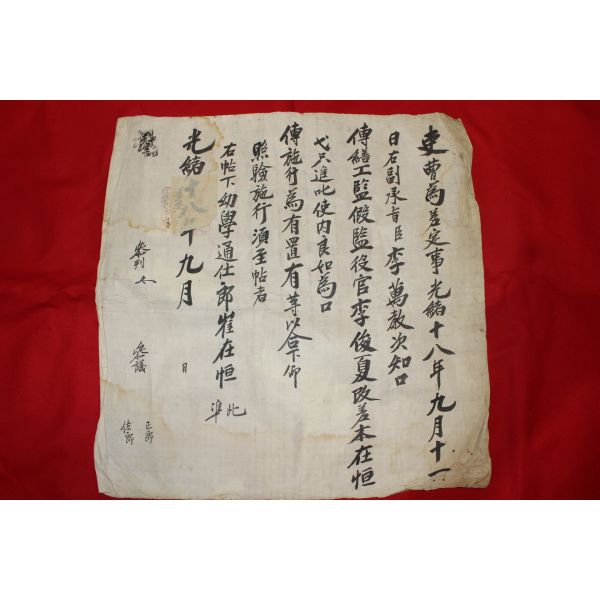 吏曹爲差定事光緖十八年九月十一
日右副承旨臣李萬敎次知口
傳繕工監假監役官李俊夏改差本在恒
弋只進叱使內良如爲口
傳施行爲有置有等以合下仰
照驗施行須至帖者
右帖下幼學通仕郎崔在恒
準此
光緖十八年九月 日
參判
參議
正郎
佐郎